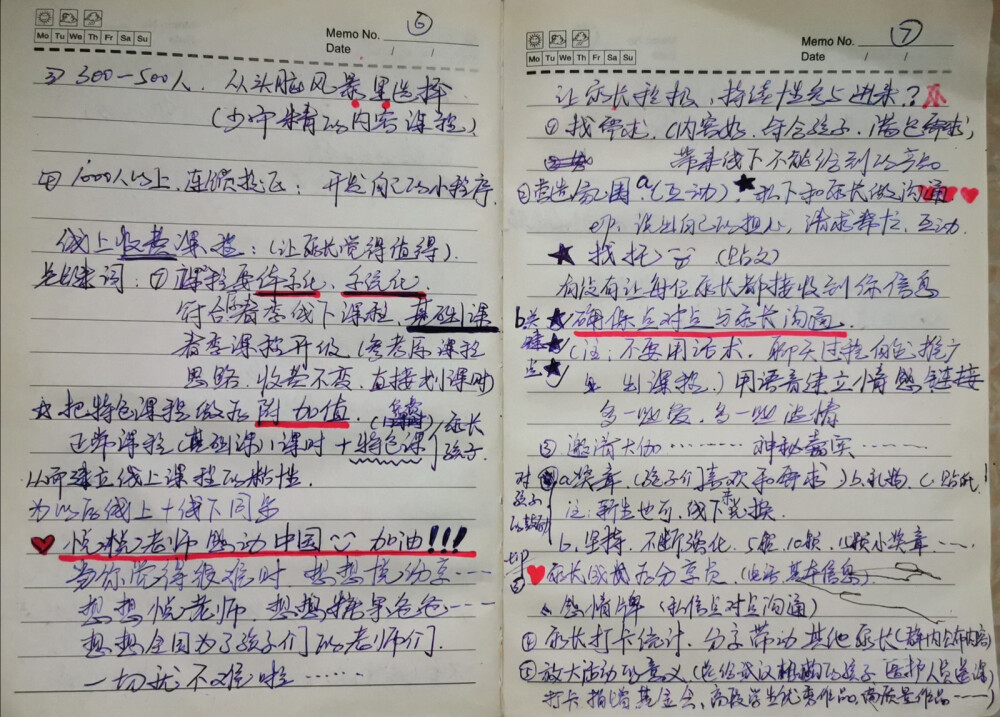 Mo Tu We Th Fr Sa Su
Memo No. ⑥
Date / /
③ 300—500人. 从头脑风暴里选择
(少而精的内容课程)
④ 1000人以上, 连锁机证: 开发自己的小程序.
线上收费课程: (让家长觉得值得)
关键词: ① 课程要体系化、系统化.
符合春季线下课程, 基础课
春季课程升级 (参考原课程
思路. 收费不变. 直接划课时
☆ 把特色课程做为附加值. 家长
正常课程 (基础课) 1课时 + 特色课 孩子.
从而建立线上课程的粘性.
为以后线上+线下同步
悦悦老师 感动中国 加油!!!
当你觉得较难时 想想悦分享……
想想悦老师 想想糖果爸爸……
想想全国为了孩子们的老师们.
一切就不难啦……
Mo Tu We Th Fr Sa Su
Memo No. ⑦
Date / /
让家长积极、持续性参与进来?
① 找需求. (内容好. 符合孩子. 满足需求,
带来线下不能给到的东西
② 营造氛围. a (互动). ★ 私下和家长做沟通
ep. 说出自己的担心, 请求帮忙. 互动.
★ 找托 (贴文)
有没有让每位家长都接收到你信息
b 关键点 ★ 确保点对点与家长沟通.
(注: 不要用话术. 聊天过程自然推广
出课程.) 用语音建立情感链接
多一些爱, 多一些热情
③ 邀请大伽……… 神秘嘉宾………
对孩子的鼓励 a. 奖章. (孩子们喜欢和需求) b. 礼物. c. 贴纸!
注: 新生也可. 线下来兑换.
b. 坚持. 不断强化. 5颗. 10颗. 小奖章……
家长或我为分享员. (电话 基本信息).
感情牌 (私信点对点沟通)
④ 家长打卡统计. 分享带动其他家长 (群内公布内容)
⑤ 放大活动的意义 (送给武汉的孩子 医护人员
打卡捐赠基金会、高校学生优秀作品. 高质量作品……)